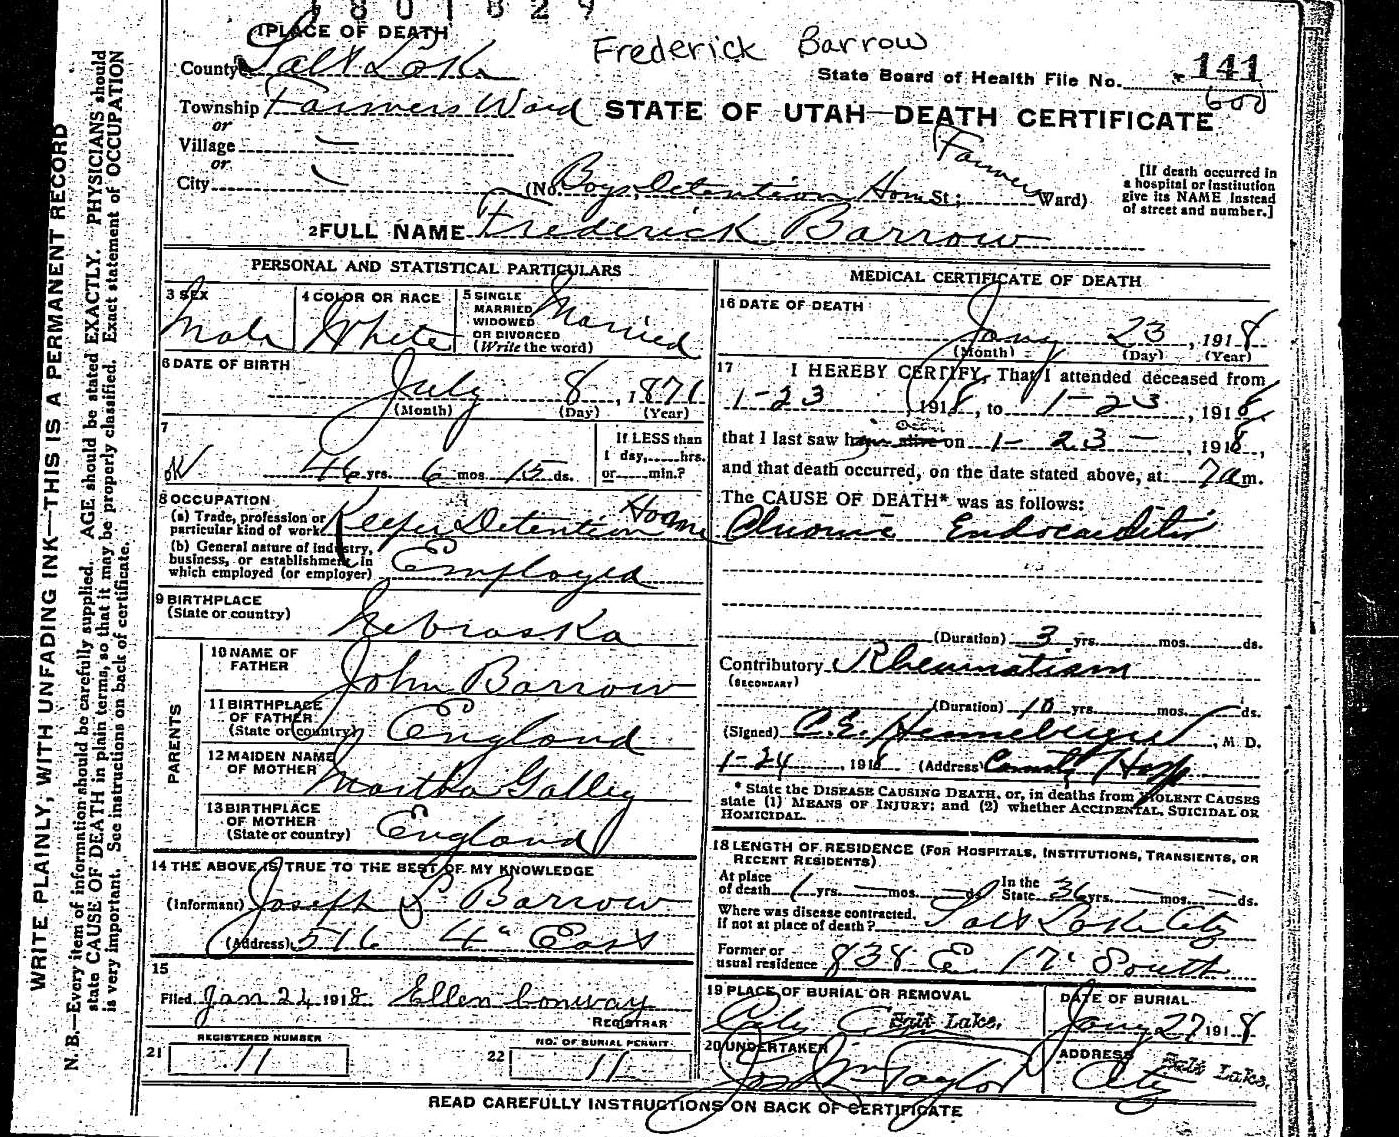 1801829
1 PLACE OF DEATH
Frederick Barrow
County Salt Lake
State Board of Health File No. 141
600
Township Farmers Ward
STATE OF UTAH—DEATH CERTIFICATE
or
Village —
or
City —
(No. Boys Detention Hom St; Farmers Ward)
[If death occurred in
a hospital or institution
give its NAME instead
of street and number.]
2 FULL NAME Frederick Barrow
PERSONAL AND STATISTICAL PARTICULARS
3 SEX
Male
4 COLOR OR RACE
White
5 SINGLE
MARRIED
WIDOWED
OR DIVORCED
(Write the word)
Married
6 DATE OF BIRTH
July 8, 1871
(Month) (Day) (Year)
7
46 yrs. 6 mos. 15 ds.
If LESS than
1 day, hrs.
or min.?
8 OCCUPATION
(a) Trade, profession or
particular kind of work Keeper Detention Home
(b) General nature of Industry,
business, or establishment in
which employed (or employer) Employed
9 BIRTHPLACE
(State or country) Nebraska
PARENTS
10 NAME OF
FATHER John Barrow
11 BIRTHPLACE
OF FATHER
(State or country) England
12 MAIDEN NAME
OF MOTHER Martha Galley
13 BIRTHPLACE
OF MOTHER
(State or country) England
14 THE ABOVE IS TRUE TO THE BEST OF MY KNOWLEDGE
(Informant) Joseph S. Barrow
(Address) 516 4" East
15
Filed Jan 24 1918 Ellen Conway
REGISTRAR
21 REGISTERED NUMBER
11
22 NO. OF BURIAL PERMIT
11
MEDICAL CERTIFICATE OF DEATH
16 DATE OF DEATH
Jany 23, 1918
(Month) (Day) (Year)
17 I HEREBY CERTIFY, That I attended deceased from
1-23, 1918, to 1-23, 1918,
that I last saw h alive on 1-23-, 1918,
and that death occurred, on the date stated above, at 7 a m.
The CAUSE OF DEATH* was as follows:
Chronic Endocarditis
(Duration) 3 yrs. mos. ds.
Contributory Rheumatism
(SECONDARY)
(Duration) 10 yrs. mos. ds.
(Signed) C.E. , M D.
1-24, 1918 (Address) County Hosp
* State the DISEASE CAUSING DEATH, or, in deaths from VIOLENT CAUSES
state (1) MEANS OF INJURY; and (2) whether ACCIDENTAL, SUICIDAL OR
HOMICIDAL.
18 LENGTH OF RESIDENCE (FOR HOSPITALS, INSTITUTIONS, TRANSIENTS, OR
RECENT RESIDENTS)
At place
of death 1 yrs. — mos. — ds. In the
State 36 yrs. — mos. — ds.
Where was disease contracted,
if not at place of death? Salt Lake City
Former or
usual residence 838 E 17" South
19 PLACE OF BURIAL OR REMOVAL
City Cem Salt Lake.
DATE OF BURIAL
Jany 27 1918
20 UNDERTAKER
Jos Wm Taylor
ADDRESS
City Salt Lake.
READ CAREFULLY INSTRUCTIONS ON BACK OF CERTIFICATE
WRITE PLAINLY, WITH UNFADING INK—THIS IS A PERMANENT RECORD
N. B.—Every item of information should be carefully supplied. AGE should be stated EXACTLY. PHYSICIANS should
state CAUSE OF DEATH in plain terms, so that it may be properly classified. Exact statement of OCCUPATION
is very important. See instructions on back of certificate.